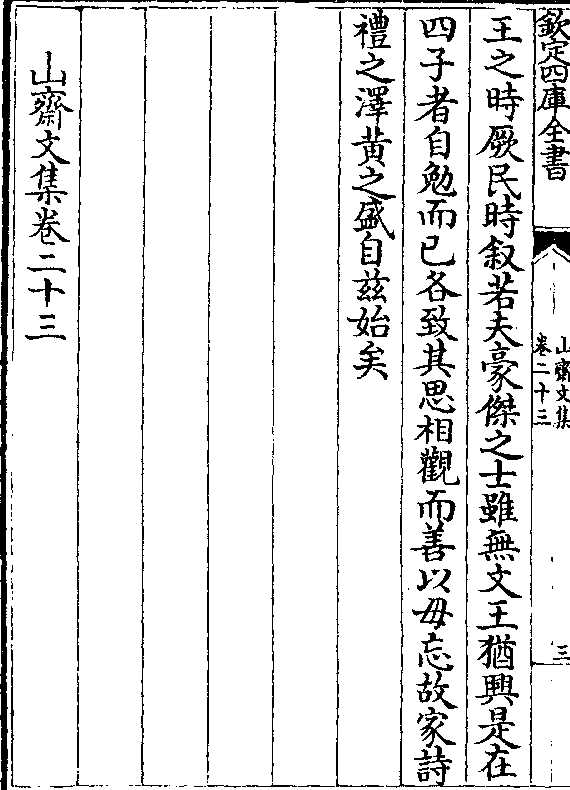 欽定四庫全書
山齋文集
卷二十三
三
王之時厥民時叙若夫豪傑之士雖無文王猶興是在
四子者自勉而已各致其思相觀而善以毋忘故家詩
禮之澤黄之盛自兹始矣
山齋文集卷二十三